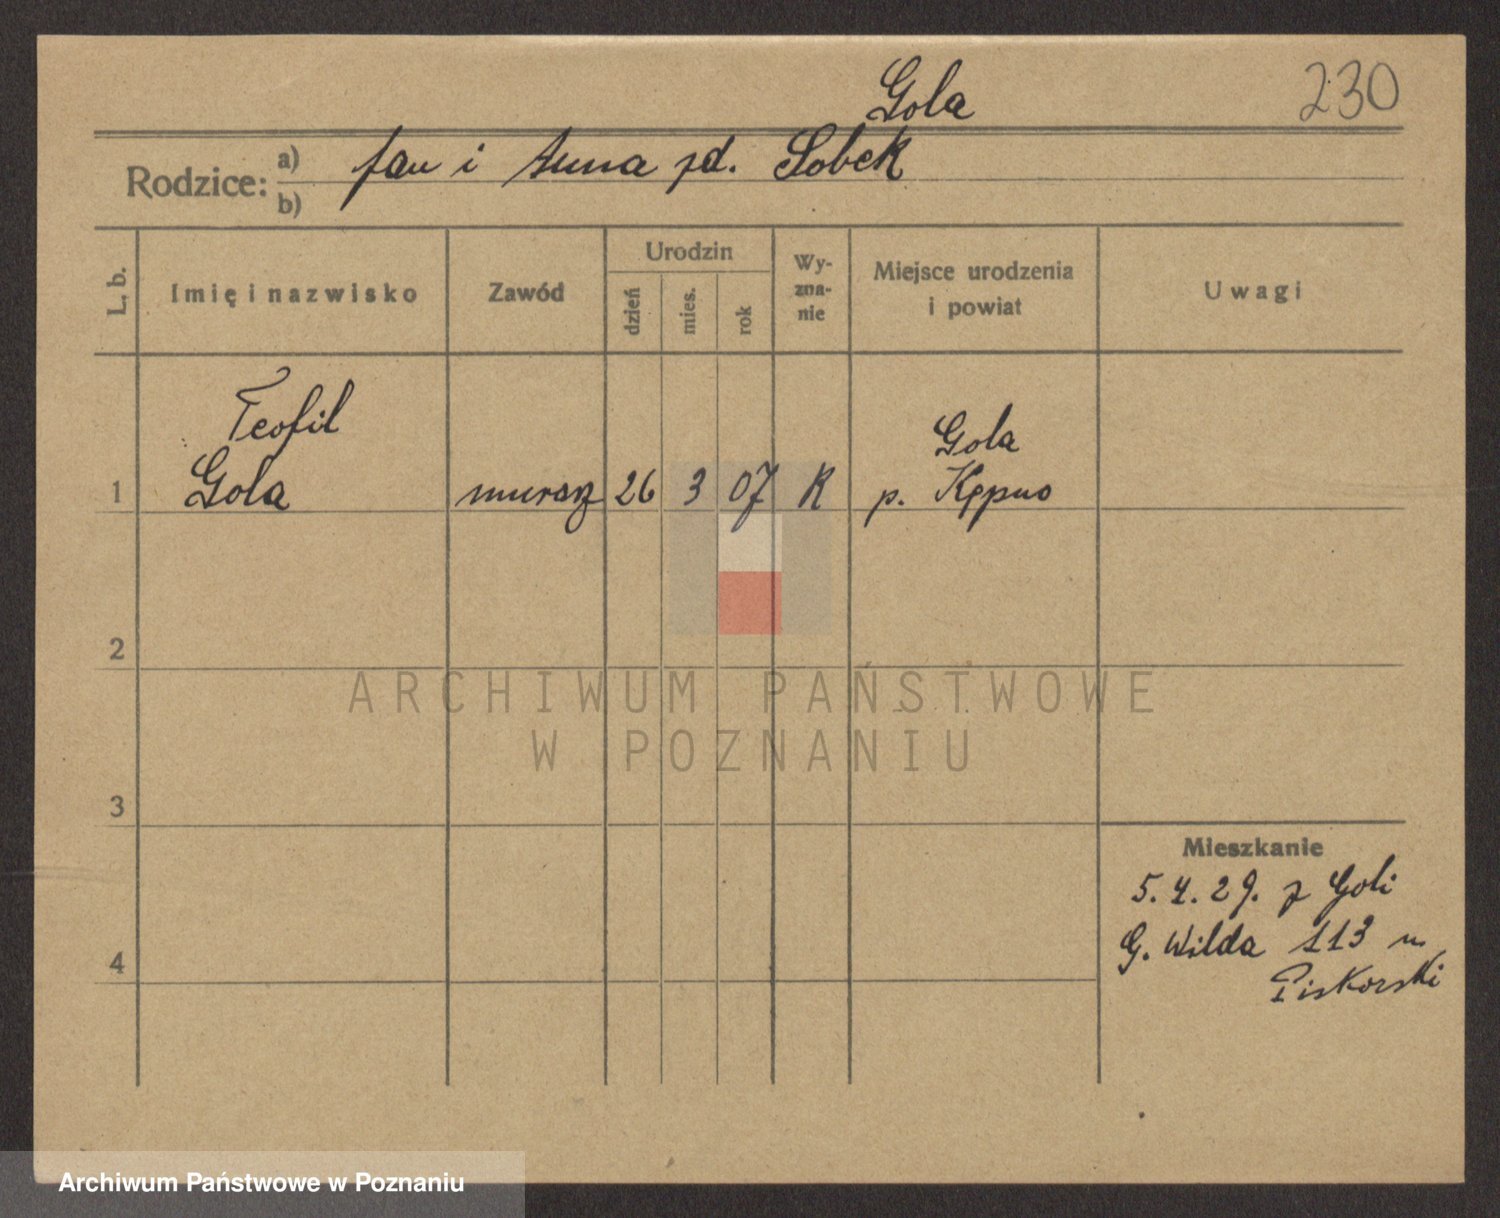 Gola
230
Rodzice: a) Jan i Anna zd. Sobek
b)
L. b.
Imię i nazwisko
Zawód
Urodzin
dzień
mies.
rok
Wy-
zna-
nie
Miejsce urodzenia
i powiat
Uwagi
Teofil
Gola
1
Gola
murarz 26 3 07 K p. Kępno
2
ARCHIWUM PAŃSTWOWE
W POZNANIU
3
Mieszkanie
5.4.29. z Goli
G. Wilda 113 u
Piskorski
4
Archiwum Państwowe w Poznaniu